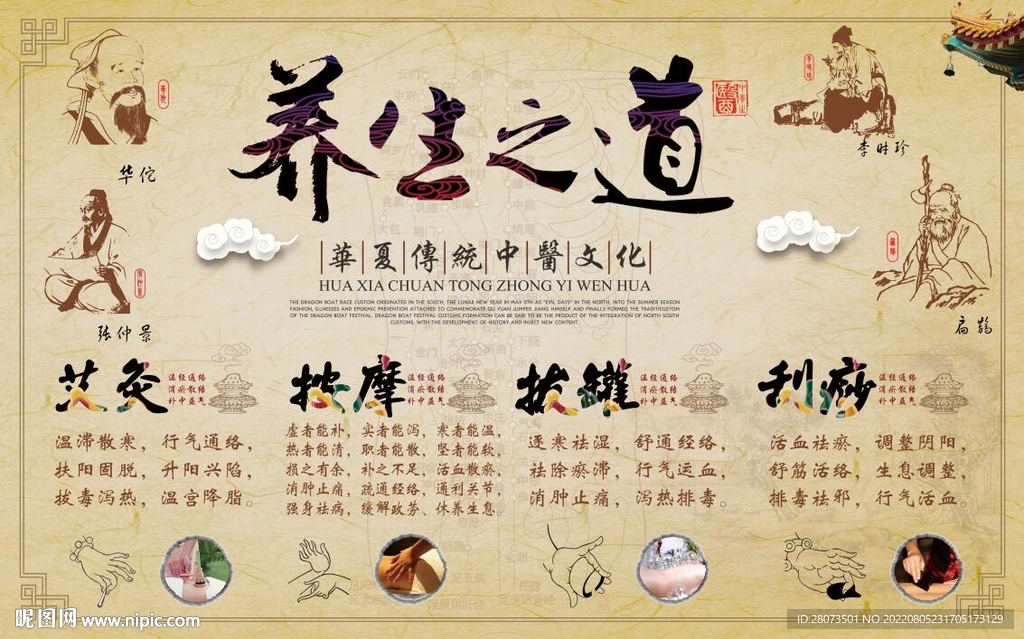 养生之道
中醫堂
華夏傳統中醫文化
HUA XIA CHUAN TONG ZHONG YI WEN HUA
THE DRAGON BOAT RACE CUSTOM ORIGINATED IN THE SOUTH, THE LUNAR NEW YEAR IN MAY 5TH AS "EVIL DAYS" IN THE NORTH, INTO THE SUMMER SEASON
FASHION, ILLNESSES AND EPIDEMIC PREVENTION ATTACHED TO COMMEMORATE QU YUAN JUMPED JIANG HIMSELF AND FINALLY FORMED THE TRADITIUSTOM
OF THE DRAGON BOAT FESTIVAL. DRAGON BOAT FESTIVAL CUSTOMS FORMATION CAN BE SAID TO BE THE PRODUCT OF THE INTEGRATION OF NORTH SOUTH
CUSTOMS, WITH THE DEVELOPMENT OF HISTORY AND INJECT NEW CONTENT.
华佗
张仲景
李时珍
扁鹊
艾灸
温经通络
消瘀散结
补中益气
温滞散寒，行气通络，
扶阳固脱，升阳兴陷，
拔毒泻热，温宫降脂。
按摩
温经通络
消瘀散结
补中益气
虚者能补，实者能泻，寒者能温，
热者能清，职者能散，坚者能软，
损之有余，补之不足，活血散瘀，
消肿止痛，疏通经络，通利关节，
强身祛病，缓解政劳、休养生息。
拔罐
温经通络
消瘀散结
补中益气
逐寒祛湿，舒通经络，
祛除瘀滞，行气运血，
消肿止痛，泻热排毒。
刮痧
温经通络
消瘀散结
补中益气
活血祛瘀，调整阴阳，
舒筋活络，生息调整，
排毒祛邪，行气活血。
昵图网 www.nipic.com
ID:28073501 NO:20220805231705173129